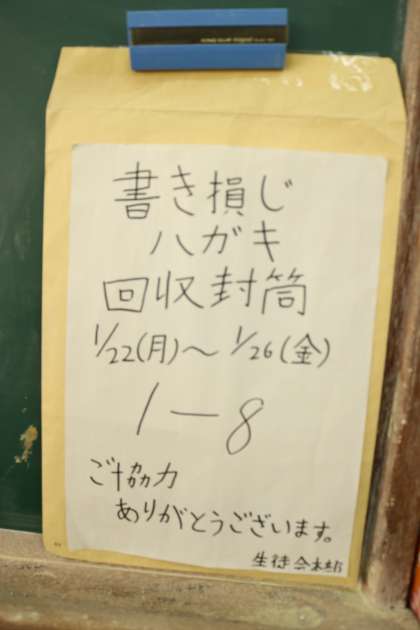 書き損じ
ハガキ
回収封筒
1/22(月)～1/26(金)
1－8
ご協力
ありがとうございます。
生徒会本部